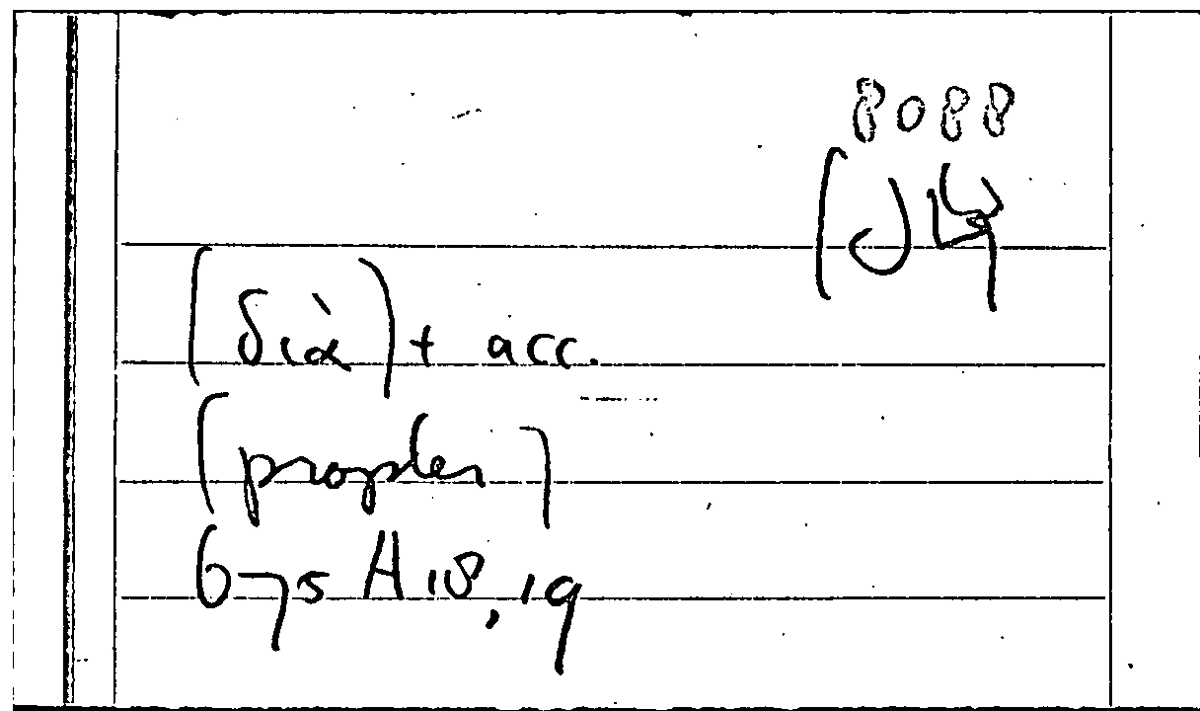 8088
(διὰ) + acc.
(propter)
675 A 18, 19